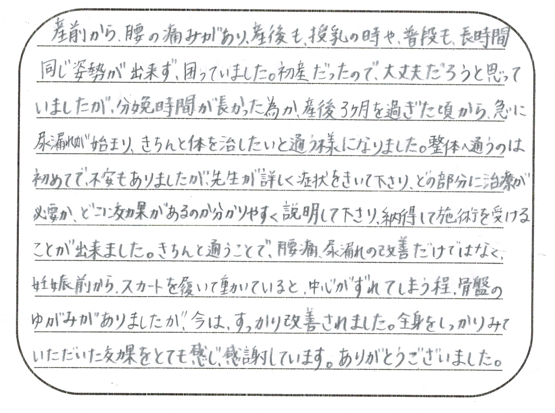 産前から、腰の痛みがあり、産後も、授乳の時や、普段も、長時間
同じ姿勢が出来ず、困っていました。初産だったので、大丈夫だろうと思って
いましたが、分娩時間が長かった為か、産後3ヶ月を過ぎた頃から、急に
尿漏れが始まり、きちんと体を治したいと通う様になりました。整体へ通うのは
初めてで、不安もありましたが、先生が詳しく症状をきいて下さり、どの部分に治療が
必要か、どこに効果があるのか分かりやすく説明して下さり、納得して施術を受ける
ことが出来ました。きちんと通うことで、腰痛、尿漏れの改善だけではなく、
妊娠前から、スカートを履いて動いていると、中心がずれてしまう程、骨盤の
ゆがみがありましたが、今は、すっかり改善されました。全身をしっかりみて
いただいた効果をとても感じ、感謝しています。ありがとうございました。